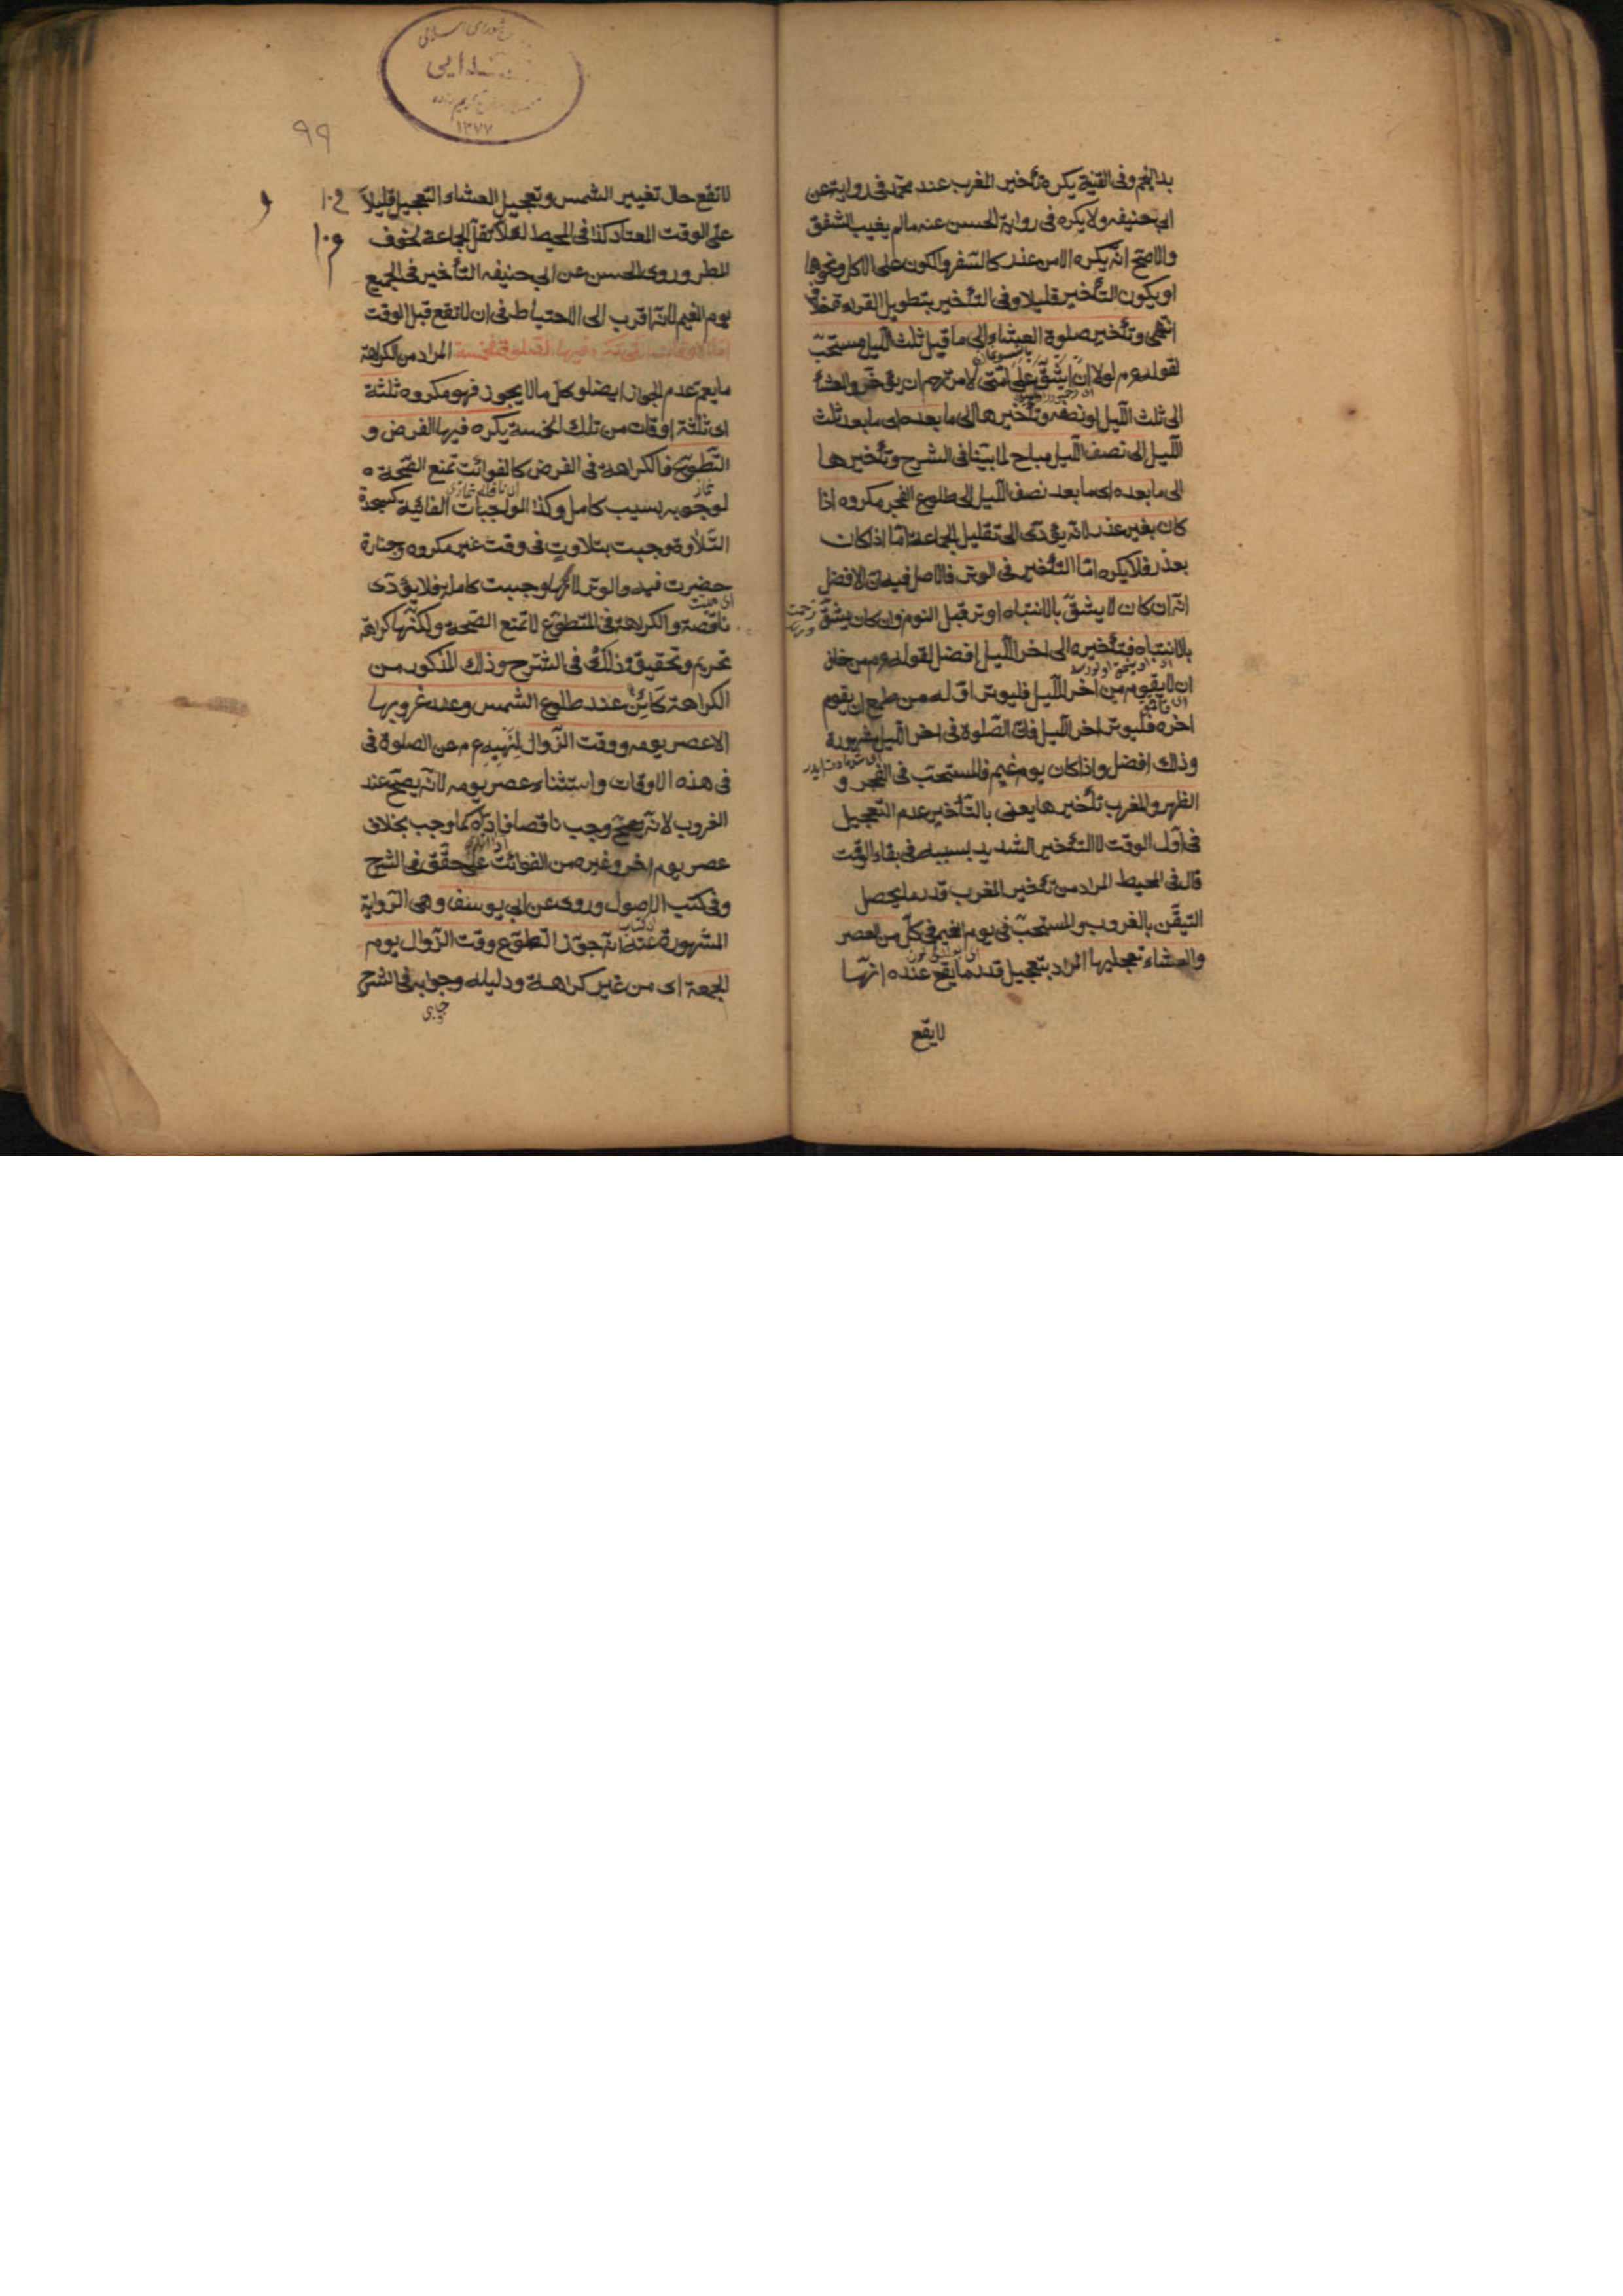 بدا النجم وفى القنية يكره تأخير المغرب عند محمد فى رواية عن
ابى حنيفه ولا يكره فى رواية الحسن عنه مالم يغيب الشفق
والاصح انه يكره الا من عذر كالسفر والكون على الاكل ونحوها
او يكون التأخير قليلا وفى التأخير بتطويل القراءة خلاف
انتهى وتأخير صلوة العشاء الى ما قبل ثلث الليل مستحبّ
لقوله عم لولا ان اشقّ على امّتى لامرتهم ان يؤخّروا العشأ
الى ثلث اللّيل او نصفه وتأخيرها الى ما بعده اى ما بعد ثلث
اللّيل الى نصف اللّيل مباح لما بيّنا فى الشرح وتأخيرها
الى ما بعده اى ما بعد نصف اللّيل الى طلوع الفجر مكروه اذا
كان بغير عذر لانّه يؤدّى الى تقليل الجماعة امّا اذا كان
بعذر فلا يكره امّا التأخير فى الوتر فالاصل فيه ان الافضل
انّه ان كان لا يشقّ بالانتباه اوتر قبل النوم وان كان يشقّ
بالانتباه فتأخيره الى اخر اللّيل افضل لقوله عم من خاف
ان لا يقوم من اخر اللّيل فليوتر اوّله من طمع ان يقوم
اخره فليوتر اخر اللّيل فانّ الصّلوة فى اخر اللّيل مشهودة
وذلك افضل واذا كان يوم غيم فالمستحبّ فى الفجر و
الظهر والمغرب تأخيرها يعنى بالتّأخير عدم التّعجيل
فى اوّل الوقت لا التأخير الشديد بسببه فى بقاء الوقت
قال فى المحيط المراد من تأخير المغرب قدر ما يحصل
التيقّن بالغروب والمستحبّ فى يوم الغيم فى كلّ من العصر
والعشاء تعجيلها المراد بتعجيل قدر ما يقع عنده انّها
لا يقع
٩٩
١٣٧٧
لا تقع حال تغيير الشمس وتعجيل العشاء التعجيل قليلاً
على الوقت المعتاد كذا فى المحيط لئلا تقلّ الجماعة لخوف
المطر وروى الحسن عن ابى حنيفه التأخير فى الجميع
يوم الغيم لانّه اقرب الى الاحتياط فى ان لا تقع قبل الوقت
امّا الاوقات التى تكره فيها الصلوة فخمسة المراد من الكراهة
ما يعم عدم الجواز ايضا وكلّ ما لا يجوز فهو مكروه ثلثة
اى ثلثة اوقات من تلك الخمسة يكره فيها الفرض و
التّطوّع فالكراهة فى الفرض كالفوائت تمنع الصّحة
لوجوبه بسبب كامل وكذا الواجبات الفائتة كسجدة
التّلاوة وجبت بتلاوت فى وقت غير مكروه وجنازة
حضرت فيه والوتر لانّها وجبت كاملة فلا يؤدّى
ناقصة والكراهة فى التطوّع لا تمنع الصّحة ولكنّها كراهة
تحريم وتحقيق ذلك فى الشرح وذاك المذكور من
الكراهة كائن عند طلوع الشمس وعند غروبها
الا عصر يومه ووقت الزّوال لنهيه عم عن الصلوة فى
فى هذه الاوقات واستثناء عصر يومه لانّه يصحّ عند
الغروب لانّه وجب ناقصا كما وجب بخلاف
عصر يوم اخر وغيره من الفوائت على حقّق فى الشرح
وفى كتب الاصول وروى عن ابى يوسف وهى الرّواية
المشهورة عنه انّه جوّز التّطوّع وقت الزّوال يوم
الجمعة اى من غير كراهة ودليله وجوابه فى الشرح